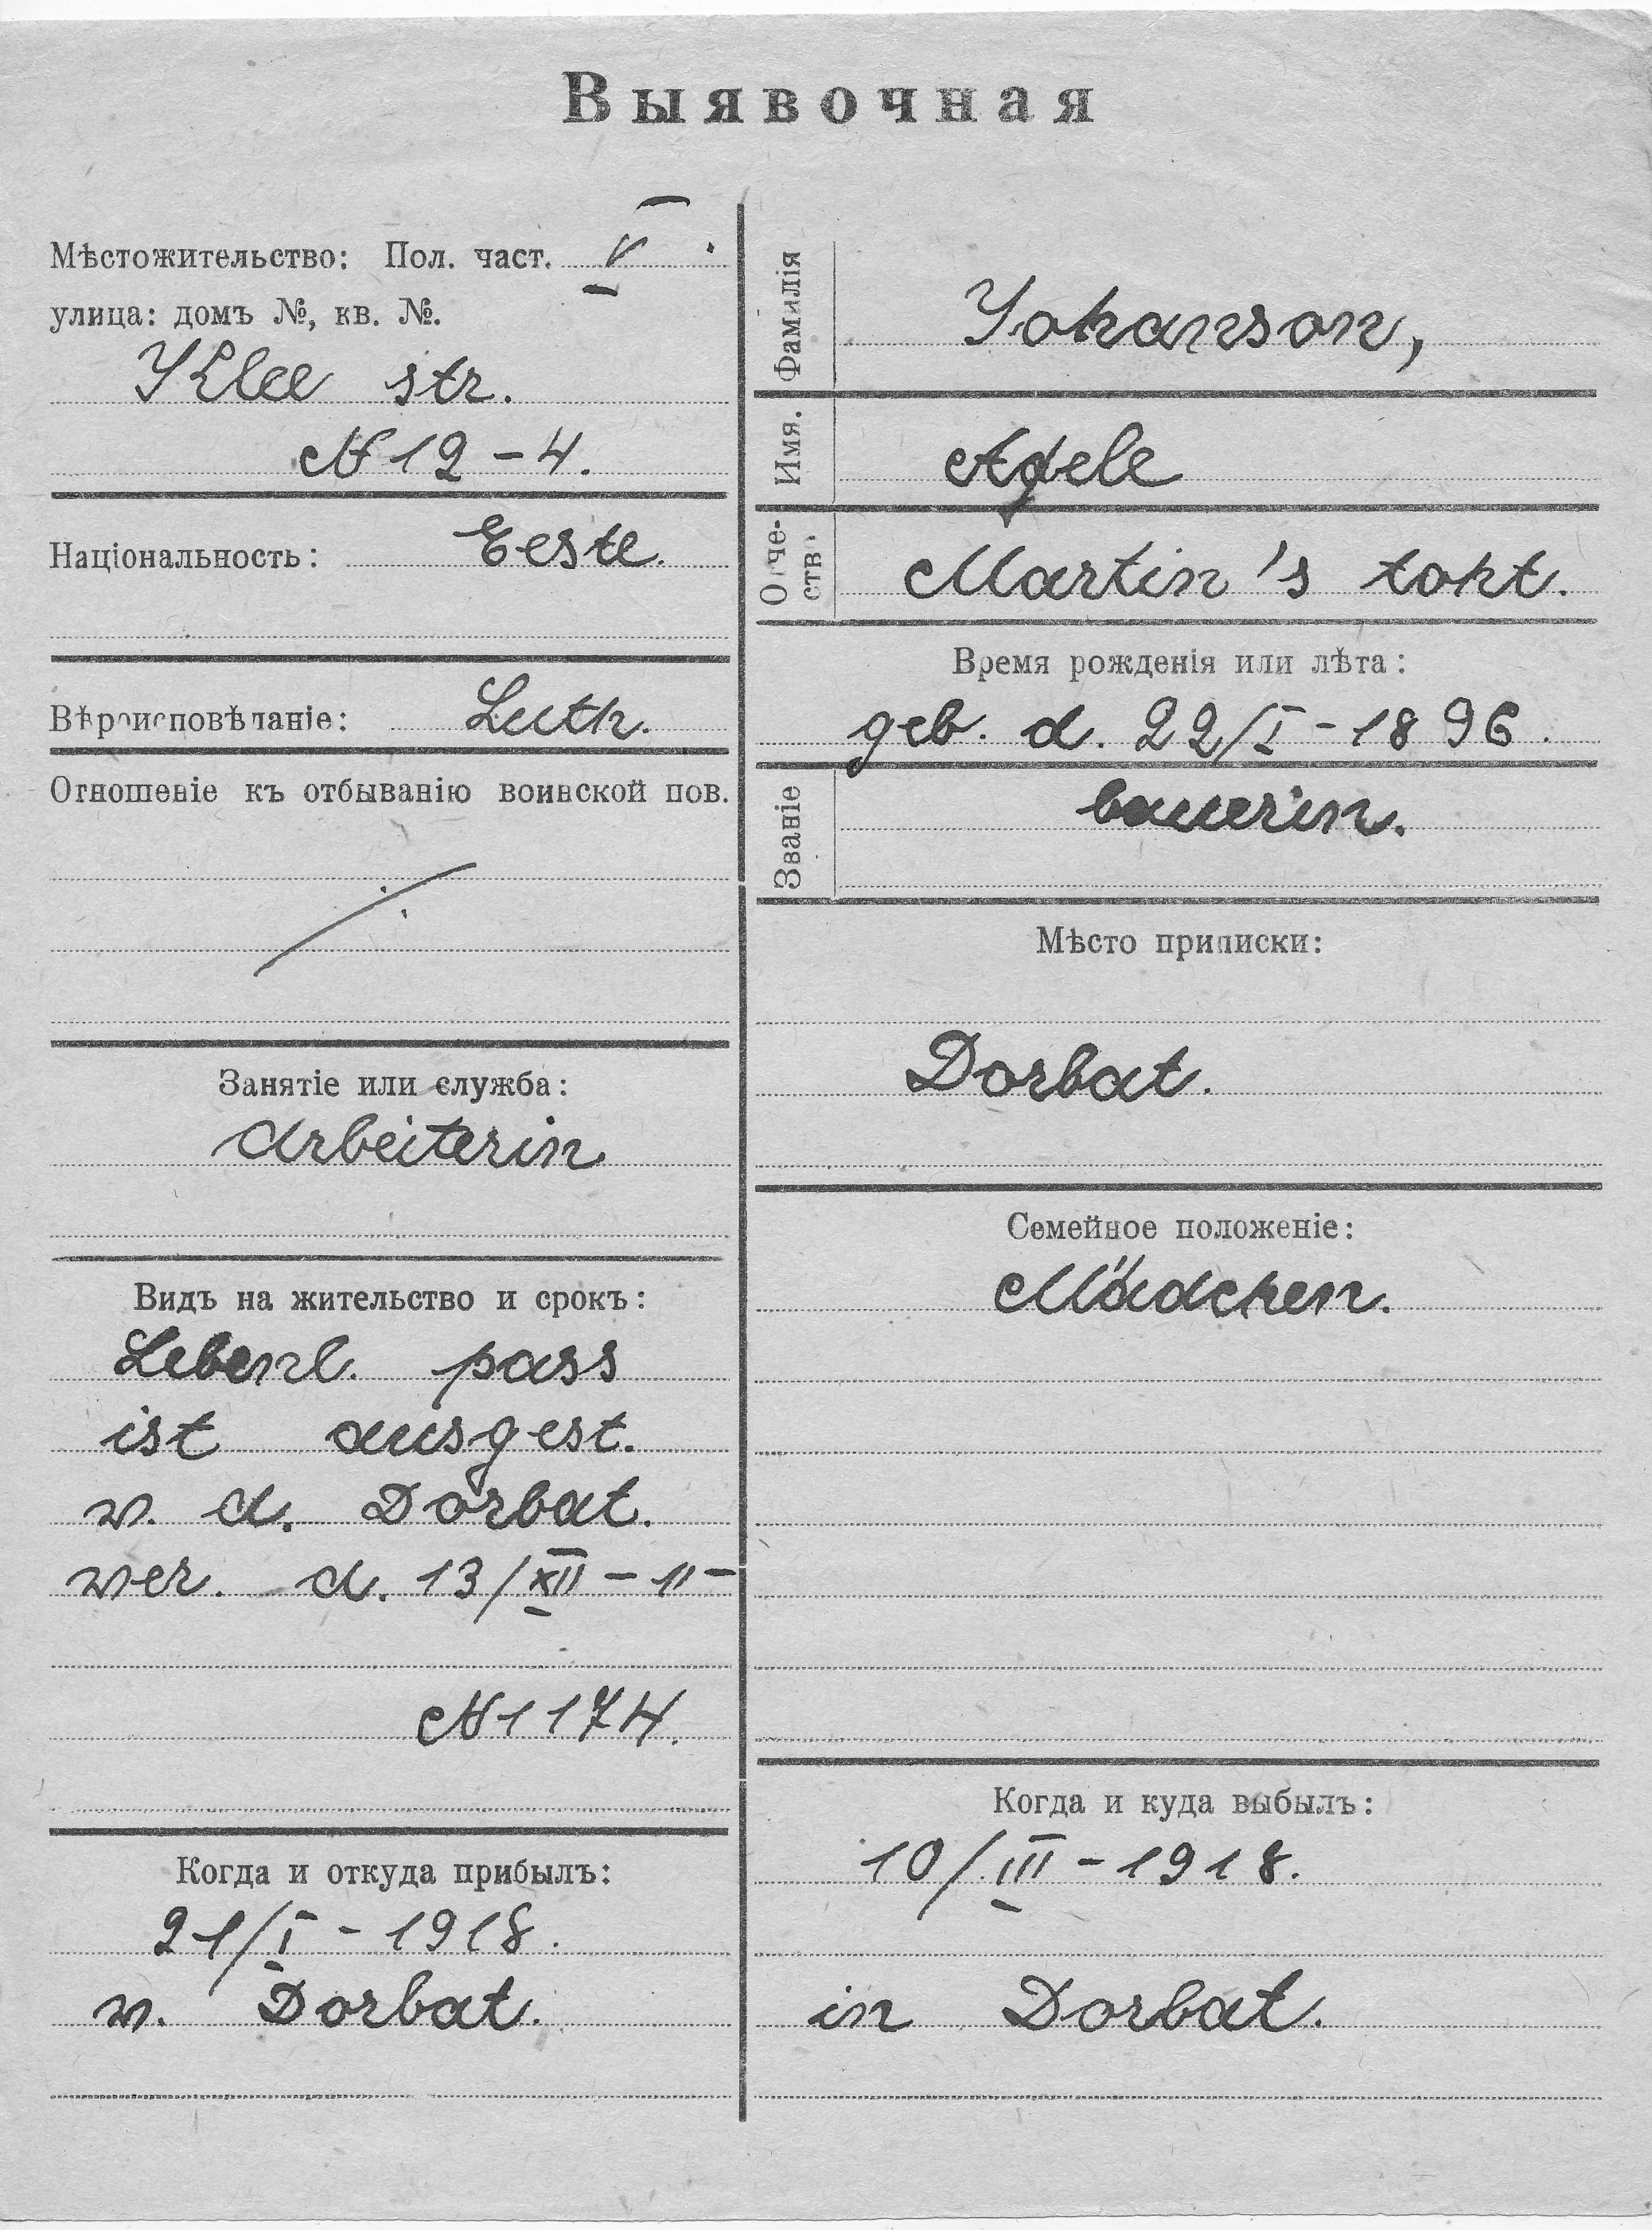 Выявочная
Мѣстожительство: Пол. част. V.
улица: домъ №, кв. №.
str.
№ 12 - 4.
Національность: Eeste.
Вѣроисповѣданіе: Luth.
Отношеніе къ отбыванію воинской пов.
Занятіе или служба:
Arbeiterin
Видъ на жительство и срокъ:
Lebenl. pass
ist ausgest.
v. d. Dorbat.
ver. d. 13/XII - 11 -
№ 1174.
Когда и откуда прибылъ:
21/I - 1918.
v. Dorbat.
Фамилія
Yohanson,
Имя.
Adele
Отче-
ство
Martin's toht.
Время рожденія или лѣта:
geb. d. 22/I - 1896.
Званіе
bauerin.
Мѣсто приписки:
Dorbat.
Семейное положеніе:
Mädchen.
Когда и куда выбылъ:
10/III - 1918.
in Dorbat.